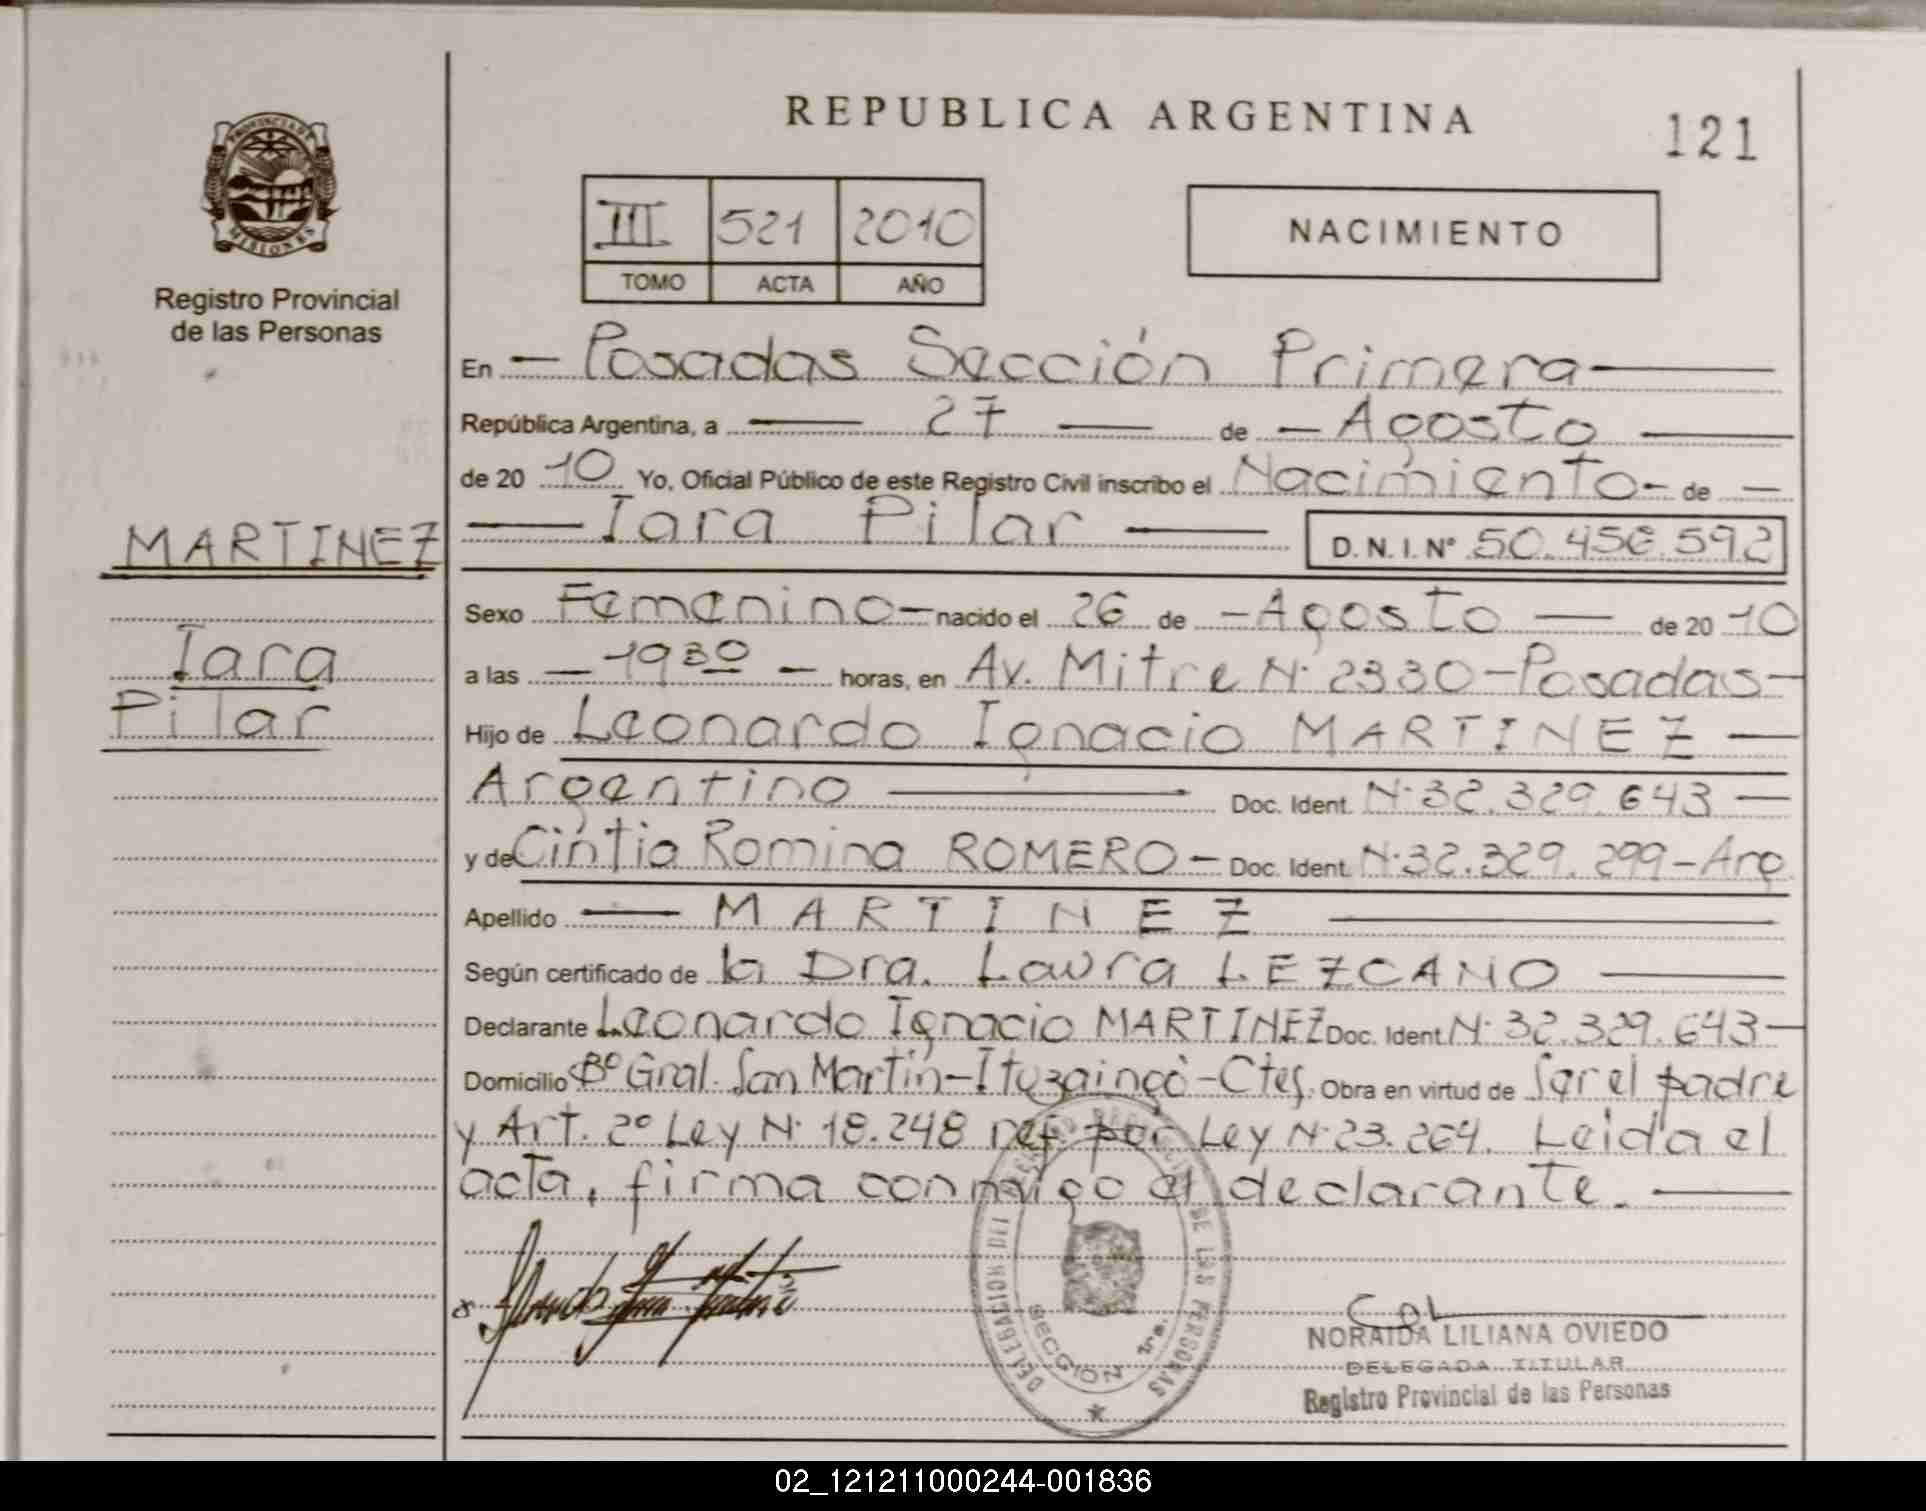 REPUBLICA ARGENTINA
121
PROVINCIA DE
MISIONES
Registro Provincial
de las Personas
III 521 2010
TOMO ACTA AÑO
NACIMIENTO
En - Posadas Sección Primera
República Argentina, a 27 de - Agosto
de 20 10 Yo, Oficial Público de este Registro Civil inscribo el Nacimiento - de -
Iara Pilar D.N.I. Nº 50.456.592
MARTINEZ
Iara
Pilar
Sexo Femenino - nacido el 26 de - Agosto - de 20 10
a las - 19 30 - horas, en Av. Mitre N· 2330 - Posadas -
Hijo de Leonardo Ignacio MARTINEZ -
Argentino Doc. Ident. N· 32.329.643 -
y de Cintia Romina ROMERO - Doc. Ident. N· 32.329.299 - Arg
Apellido - MARTINEZ
Según certificado de la Dra. Laura LEZCANO
Declarante Leonardo Ignacio MARTINEZ Doc. Ident. N· 32.329.643 -
Domicilio Bº Gral. San Martín - Ituzaingó - Ctes. Obra en virtud de Ser el padre
y Art. 2º Ley N· 18.248 ref por Ley N· 23.264. Leída el
acta, firma conmigo el declarante. -
DELEGACION DEL REGISTRO PROVINCIAL DE LAS PERSONAS
SECCION 1ra.
NORAIDA LILIANA OVIEDO
DELEGADA TITULAR
Registro Provincial de las Personas
02_121211000244-001836